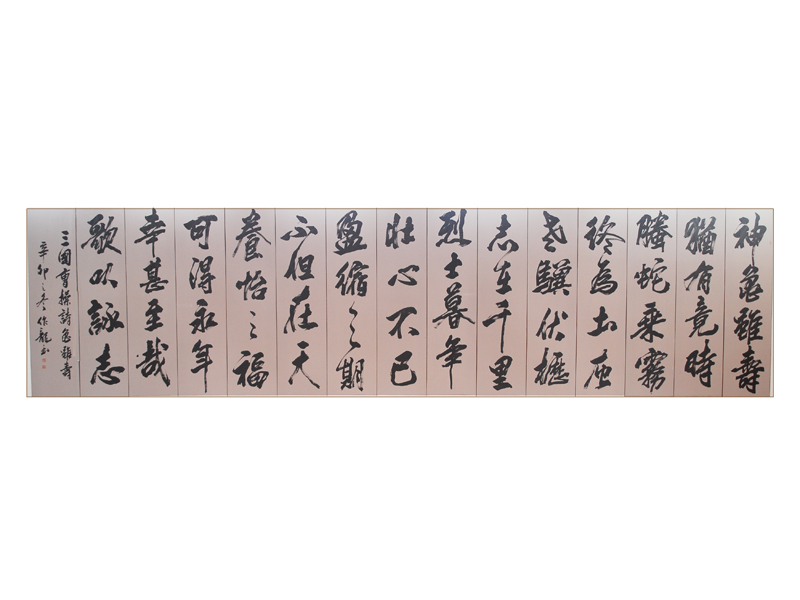 神龜雖壽
猶有竟時
騰蛇乘霧
終為土灰
老驥伏櫪
志在千里
烈士暮年
壯心不已
盈縮之期
不但在天
養怡之福
可得永年
幸甚至哉
歌以詠志
三國曹操詩龜雖壽
辛卯之冬作龍書